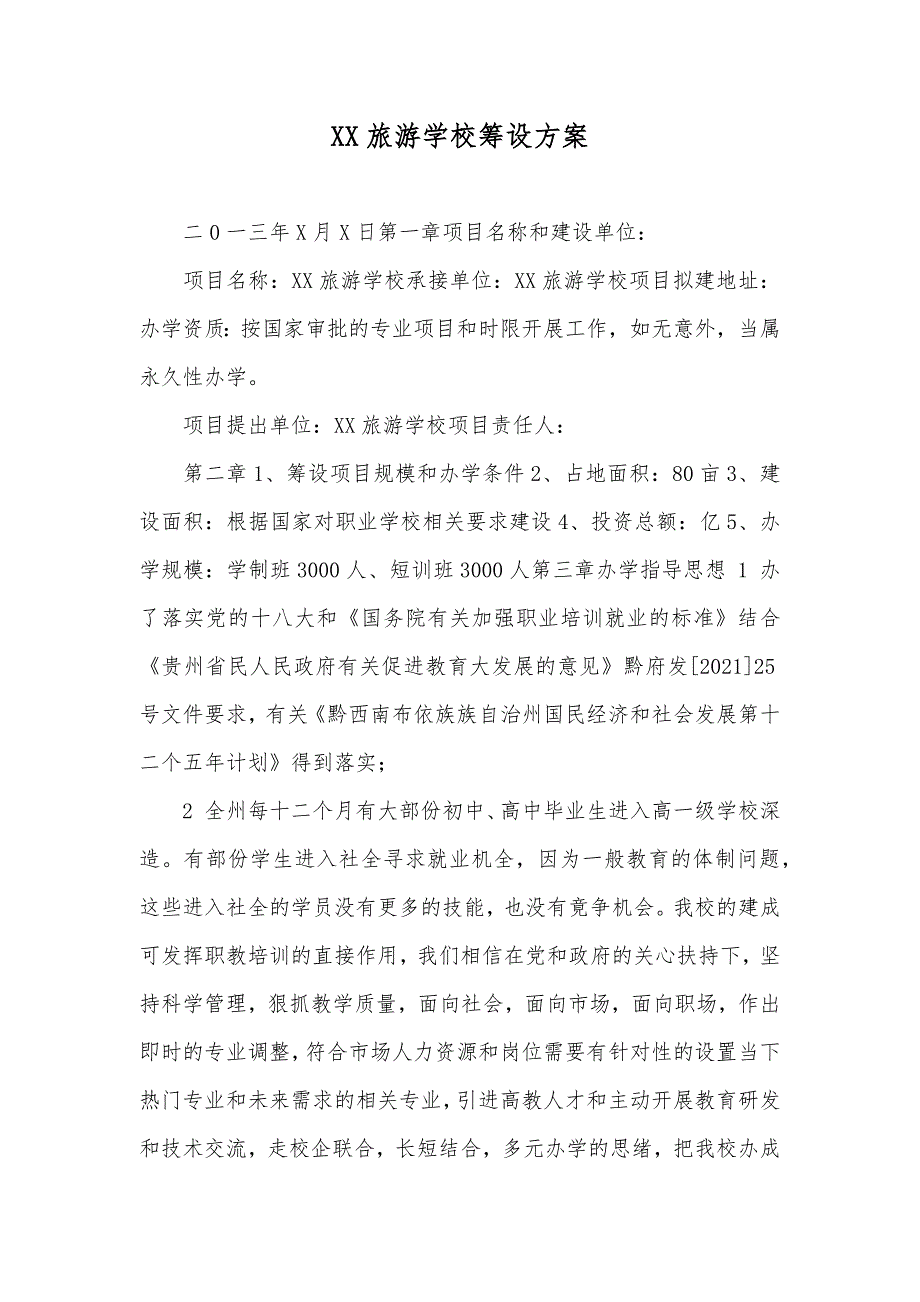 XX 旅游学校筹设方案
二 0 一三年 X 月 X 日第一章项目名称和建设单位：
项目名称：XX 旅游学校承接单位：XX 旅游学校项目拟建地址：
办学资质：按国家审批的专业项目和时限开展工作，如无意外，当属
永久性办学。
项目提出单位：XX 旅游学校项目责任人：
第二章 1、筹设项目规模和办学条件 2、占地面积：80 亩 3、建
设面积：根据国家对职业学校相关要求建设 4、投资总额：亿 5、办
学规模：学制班 3000 人、短训班 3000 人第三章办学指导思想 1 办
了落实党的十八大和《国务院有关加强职业培训就业的标准》结合
《贵州省民人民政府有关促进教育大发展的意见》黔府发[2021]25
号文件要求，有关《黔西南布依族族自治州国民经济和社会发展第十
二个五年计划》得到落实；
2 全州每十二个月有大部份初中、高中毕业生进入高一级学校深
造。有部份学生进入社全寻求就业机全，因为一般教育的体制问题，
这些进入社全的学员没有更多的技能，也没有竟争机会。我校的建成
可发挥职教培训的直接作用，我们相信在党和政府的关心扶持下，坚
持科学管理，狠抓教学质量，面向社会，面向市场，面向职场，作出
即时的专业调整，符合市场人力资源和岗位需要有针对性的设置当下
热门专业和未来需求的相关专业，引进高教人才和主动开展教育研发
和技术交流，走校企联合，长短结合，多元办学的思绪，把我校办成